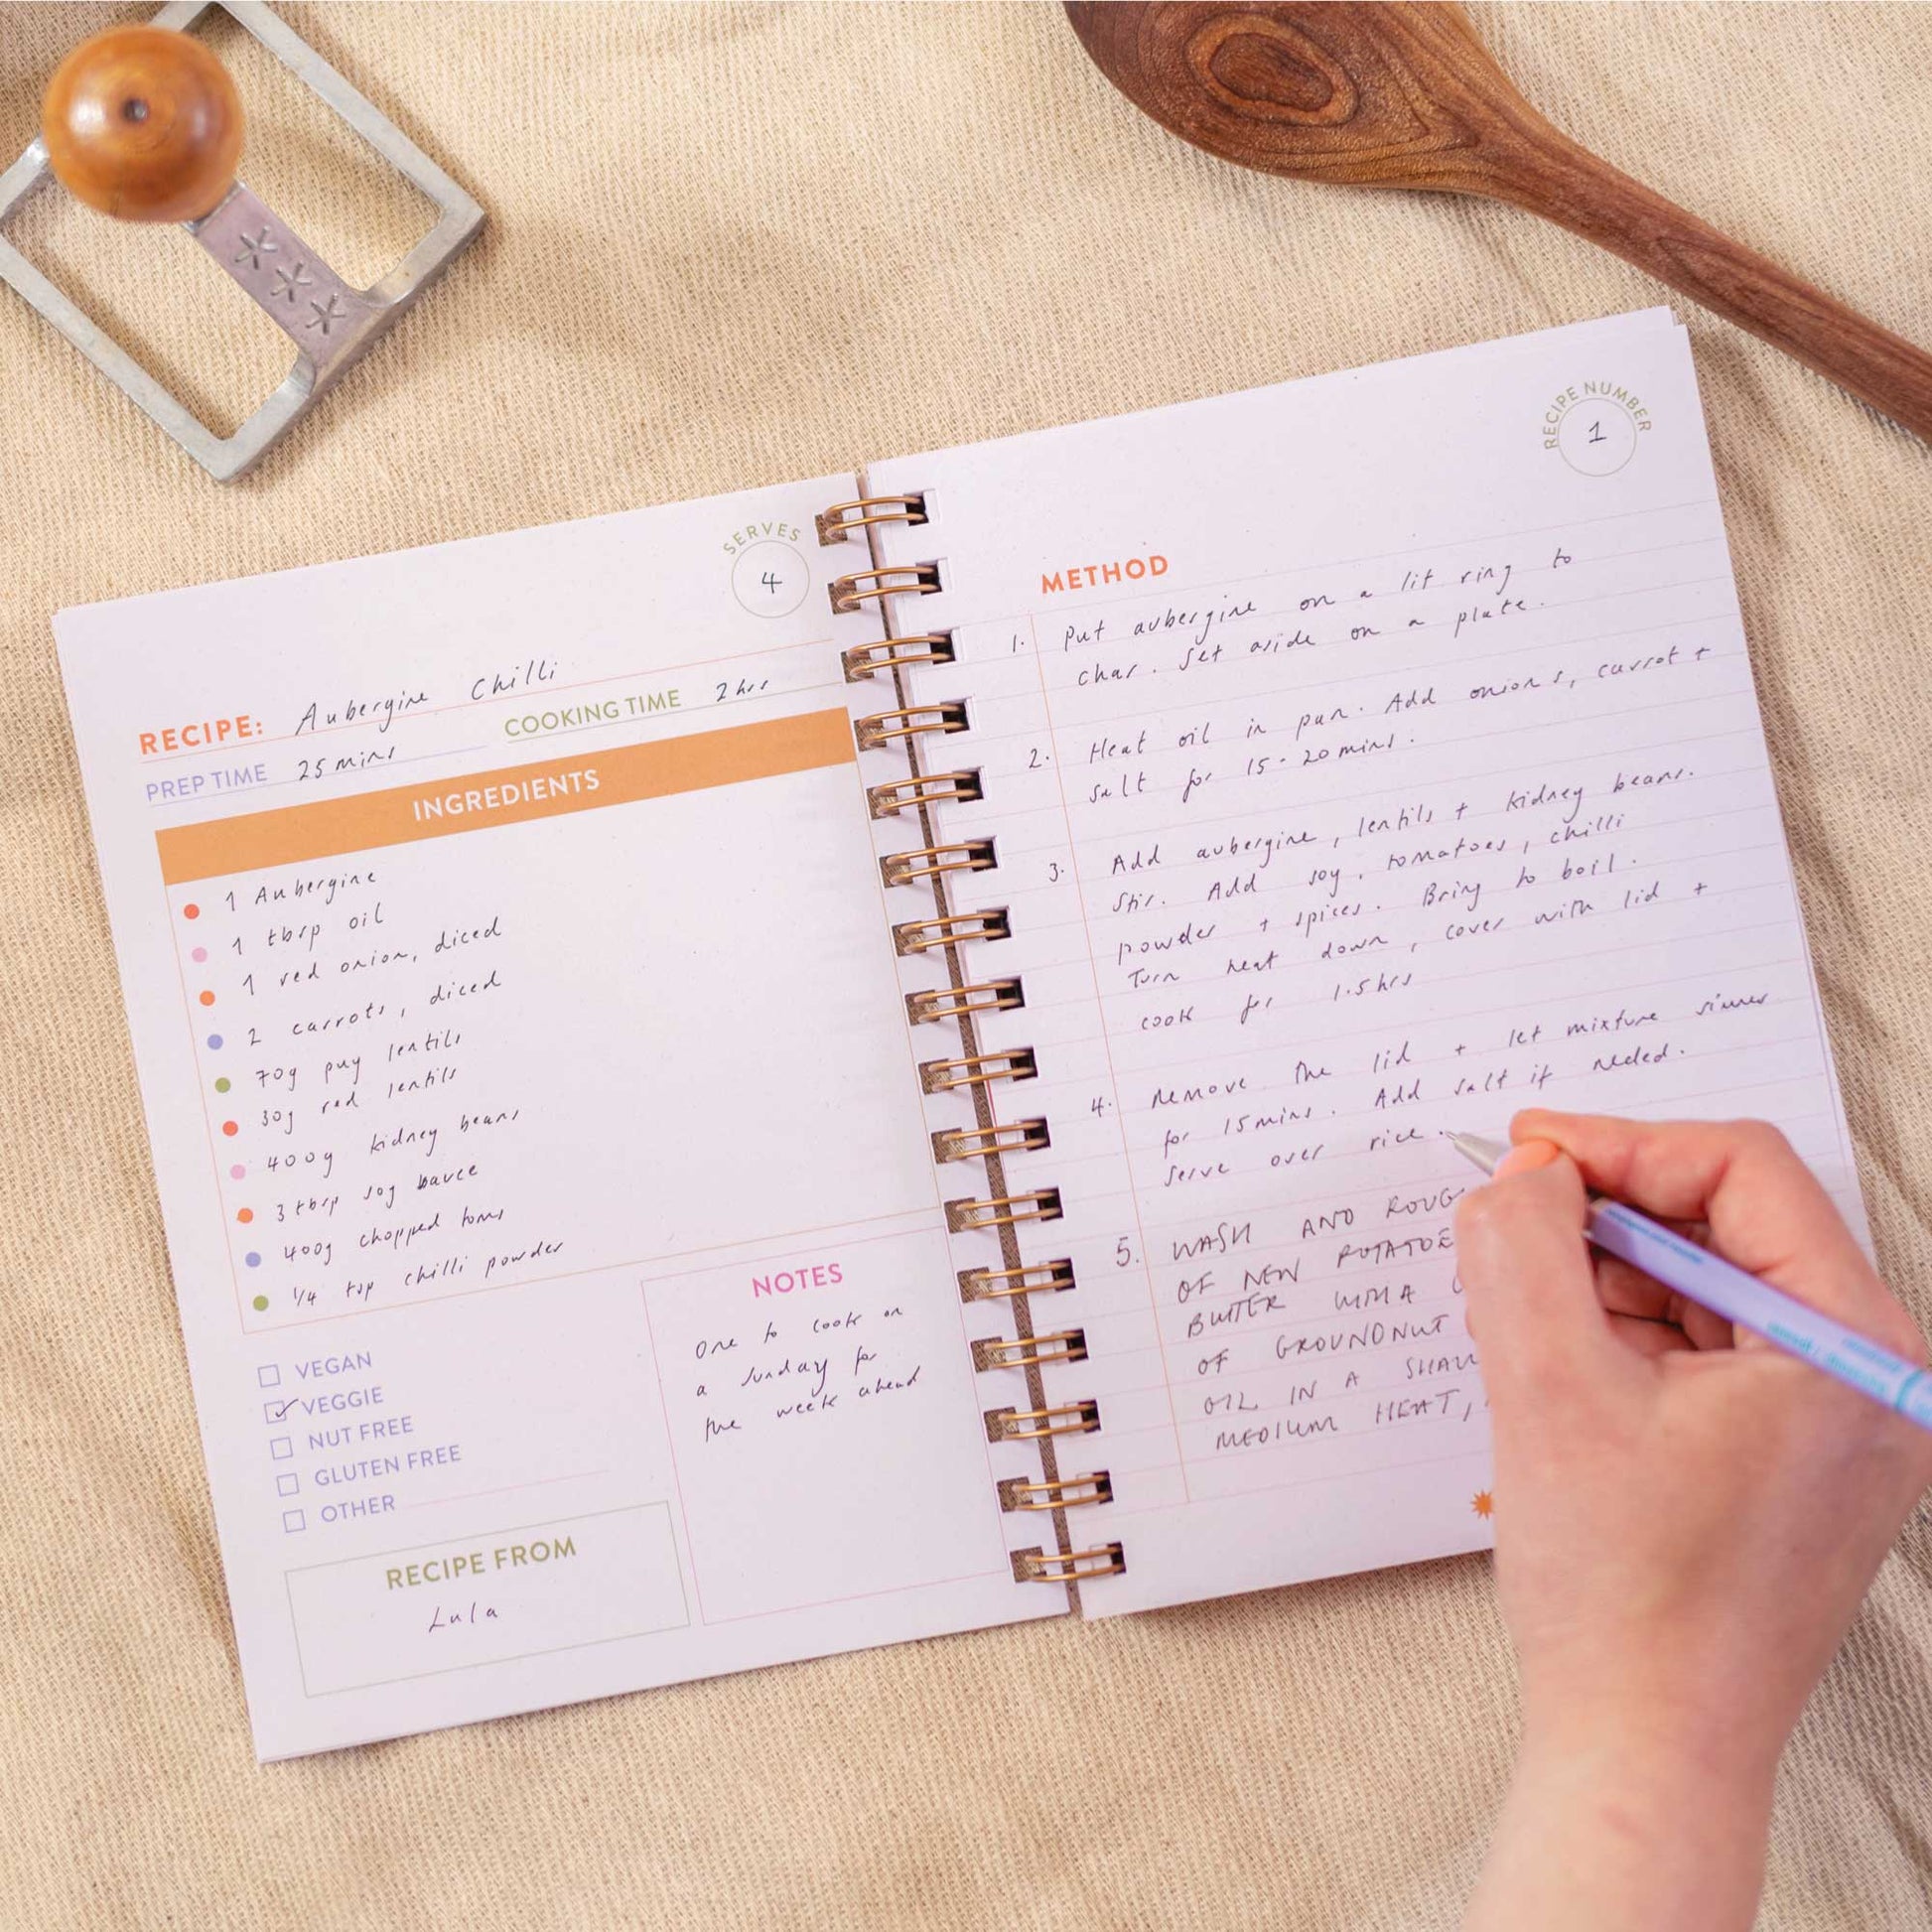 SERVES
4
RECIPE: Aubergine Chilli
PREP TIME 25 mins COOKING TIME 2 hrs
INGREDIENTS
1 Aubergine
1 tbsp oil
1 red onion, diced
2 carrots, diced
70g puy lentils
30g red lentils
400g kidney beans
3 tbsp soy sauce
400g chopped toms
1/4 tsp chilli powder
VEGAN
VEGGIE
NUT FREE
GLUTEN FREE
OTHER
NOTES
One to cook on
a Sunday for
the week ahead
RECIPE FROM
Lula
RECIPE NUMBER
1
METHOD
1. Put aubergine on a lit ring to
char. Set aside on a plate.
2. Heat oil in pan. Add onions, carrot +
salt for 15-20 mins.
3. Add aubergine, lentils + kidney beans.
Stir. Add soy, tomatoes, chilli
powder + spices. Bring to boil.
Turn heat down, cover with lid +
cook for 1.5 hrs
4. Remove the lid + let mixture simmer
for 15 mins. Add salt if needed.
Serve over rice.
5. WASH AND ROUG
OF NEW POTATOE
BUTTER WITH A
OF GROUNDNUT
OIL IN A SHALL
MEDIUM HEAT,